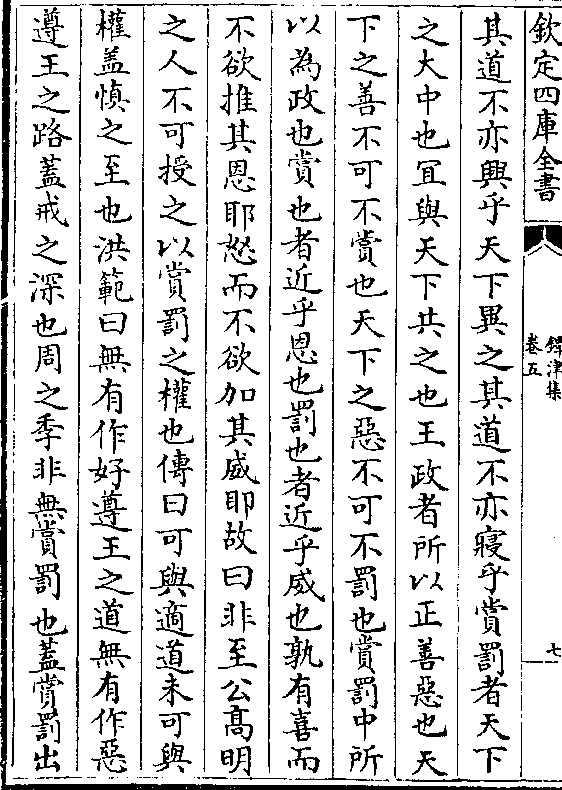 欽定四庫全書
鐔津集
卷五
七
其道不亦興乎天下異之其道不亦寢乎賞罰者天下
之大中也宜與天下共之也王政者所以正善惡也天
下之善不可不賞也天下之惡不可不罰也賞罰中所
以為政也賞也者近乎恩也罰也者近乎威也孰有喜而
不欲推其恩耶怒而不欲加其威耶故曰非至公高明
之人不可授之以賞罰之權也傳曰可與適道未可與
權盖慎之至也洪範曰無有作好遵王之道無有作惡
遵王之路蓋戒之深也周之季非無賞罰也蓋賞罰出